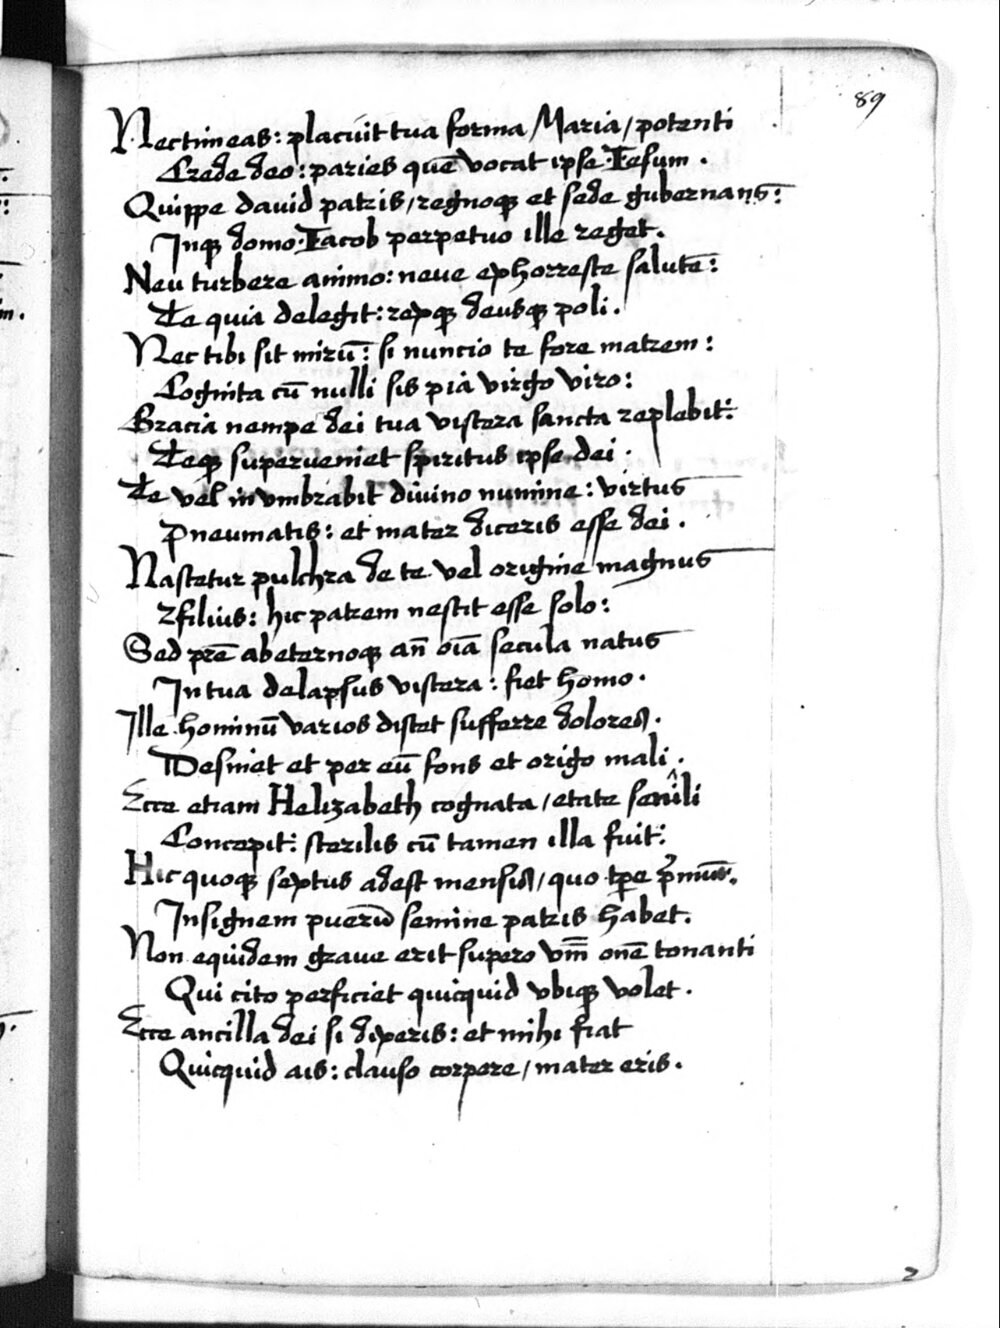 89
Nectimeas: placuit tua forma Maria / potenti
Crede deo: paries quē vocat ipse Iesum .
Quippe dauid patris / regnoqꝫ et sede gubernans:
Inqꝫ domo Iacob perpetuo ille reget.
Neu turbere animo: neue exhorresce salutē:
Te quia delegit: rexqꝫ deusqꝫ poli .
Nec tibi sit mirū: si nuncio te fore matrem :
Cognita cū nulli sis pia virgo viro:
Gracia nempe dei tua viscera sancta replebit:
Teqꝫ superueniet spiritus ipse dei .
Te vel invmbrabit diuino numine : virtus
Pneumatis : et mater diceris esse dei .
Nascetur pulchra de te vel origine magnus
filius: hic patrem nescit esse solo:
Sed prē abeternoqꝫ an̄ oīa secula natus
In tua delapsus viscera : fiet homo .
Ille hominū varios discet sufferre dolores .
Desinet et per eū fons et origo mali .
Ecce etiam Helizabeth cognata / etate senili
Concepit: sterilis cū tamen illa fuit:
Hic quoqꝫ sextus adest mensis / quo tꝑe
Insignem puerū semine patris habet.
Non equidem graue erit supero onē tonanti
Qui cito perficiet quicquid vbiqꝫ volet .
Ecce ancilla dei si dixeris : et mihi fiat
Quicquid ais : clauso corpore / mater eris .
2